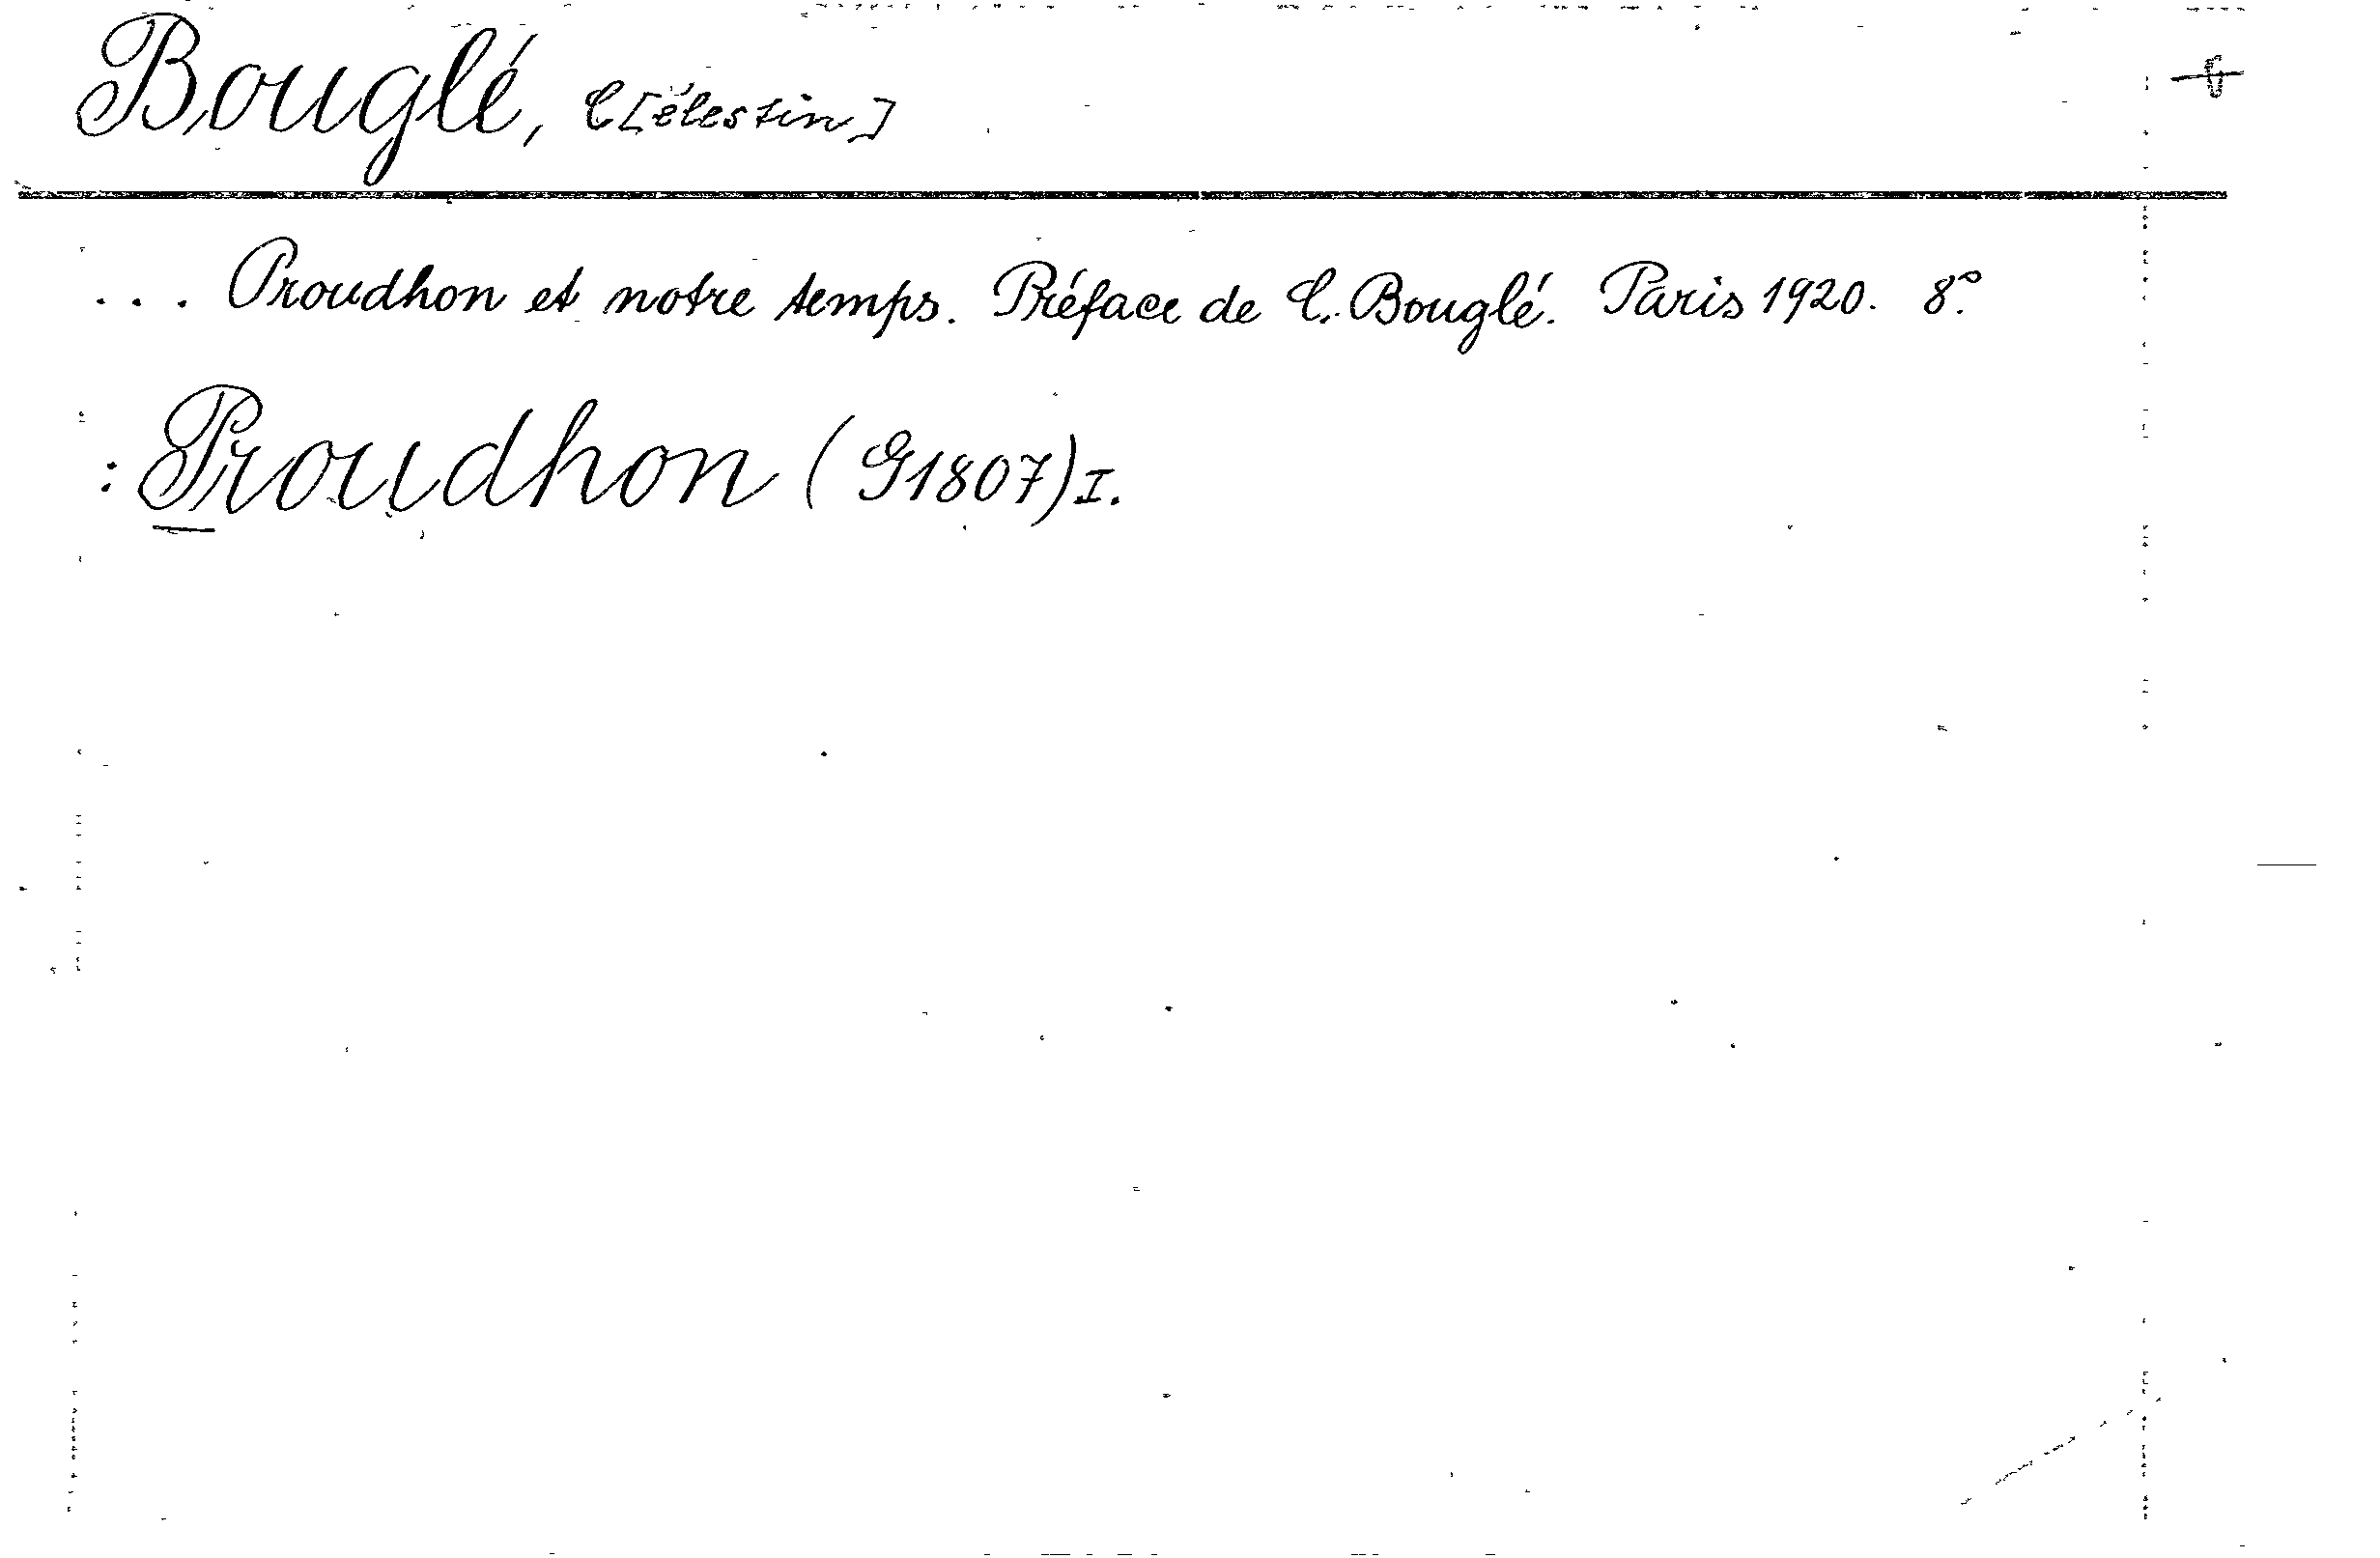 Bouglé, C[élestin]
... Proudhon et notre temps. Préface de C. Bouglé. Paris 1920. 8°.
: Proudhon (G1807) I.